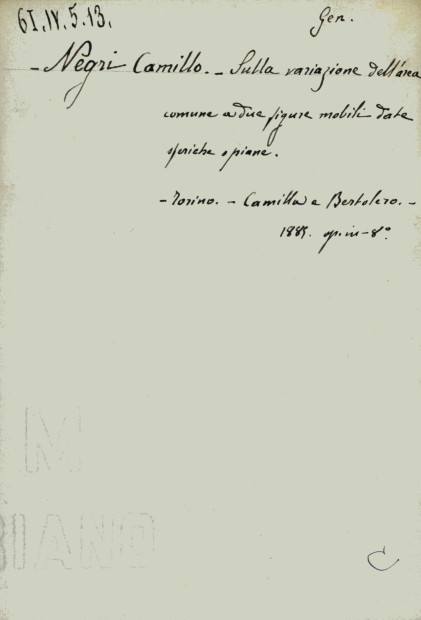 61.IV.5.13.
Gen.
- Negri Camillo. - Sulla variazione dell'area
comune a due figure mobili date
sferiche o piane.
- Torino. - Camilla e Bertolero. -
1885. op. in-8°.
M
BIANO
C